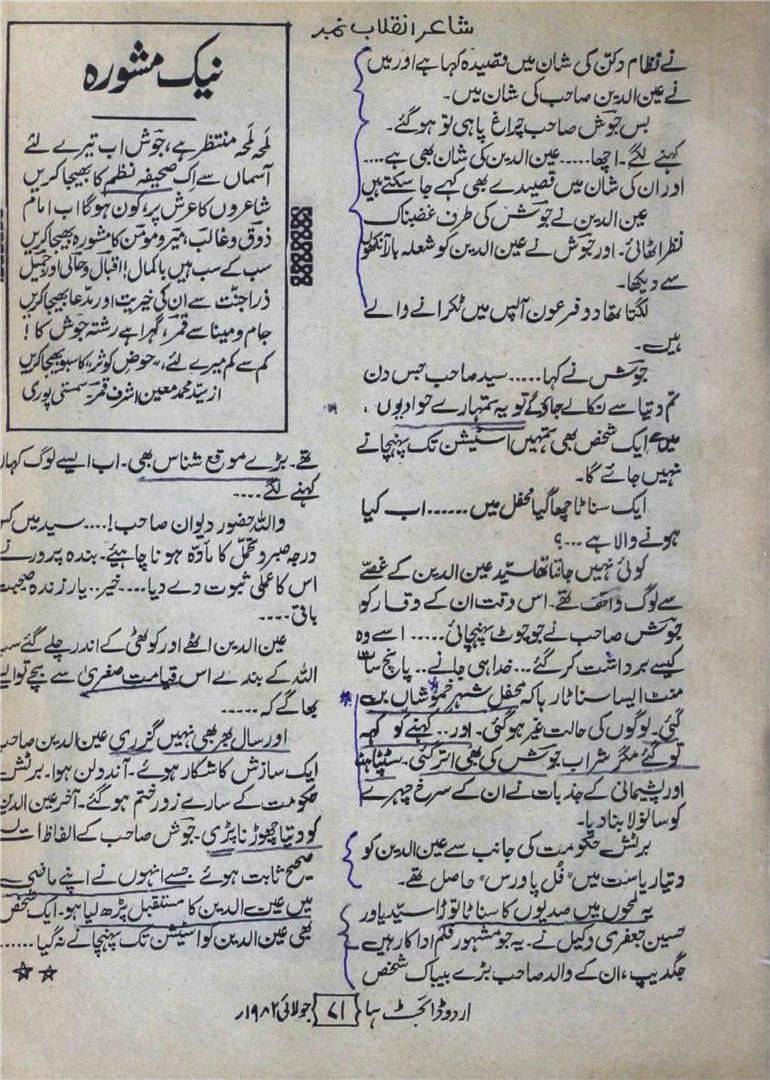 شاعر انقلاب نمبر
نے نظام دکن کی شان میں قصیدہ کہا ہے اور میں
نے عین الدین صاحب کی شان میں۔
بس جوش صاحب چراغ پا ہی تو ہو گئے۔
کہنے لگے۔ اچھا ..... عین الدین کی شان بھی ہے ....
اور ان کی شان میں قصیدے بھی کہے جا سکتے ہیں
عین الدین نے جوش کی طرف غضبناک
نظر اٹھائی۔ اور جوش نے عین الدین کو شعلہ بار آنکھوں
سے دیکھا۔
لگتا تھا دو فرعون آپس میں ٹکرانے والے
ہیں۔
جوش نے کہا ..... سید صاحب جس دن
تم دتیا سے نکالے جاؤ گے تو یہ تمہارے حواریوں ،
میں سے ایک شخص بھی تمہیں اسٹیشن تک پہنچانے
نہیں جائے گا۔
ایک سناٹا چھا گیا محفل میں ...... اب کیا
ہونے والا ہے ...؟
کوئی نہیں جانتا تھا سید عین الدین کے غصے
سے لوگ واقف تھے۔ اس وقت ان کے وقار کو
جوش صاحب نے جو چوٹ پہنچائی ..... اسے وہ
کیسے برداشت کر گئے ... خدا ہی جانے .. پانچ سات
منٹ ایسا سناٹا رہا کہ محفل شہر خموشاں بن
گئی۔ لوگوں کی حالت غیر ہو گئی۔ اور .. کہنے کو کہہ
تو گئے مگر شراب جوش کی بھی اتر گئی۔ سٹپٹاہٹ
اور پشیمانی کے جذبات نے ان کے سرخ چہرے
کو سانولا بنا دیا۔
برٹش حکومت کی جانب سے عین الدین کو
دتیا ریاست میں "فل پاورس" حاصل تھے۔
یہ لمحوں میں صدیوں کا سناٹا توڑا سید یاور
حسین جعفری وکیل نے۔ یہ جو مشہور فلم اداکار ہیں
جگدیپ، ان کے والد صاحب بڑے بیباک شخص
نیک مشورہ
لمحہ لمحہ منتظر ہے، جوش اب تیرے لئے
آسماں سے اک صحیفہ نظم کا بھیجا کریں
شاعروں کا عرش پر، کون ہوگا اب امام
ذوق و غالب، میر و مومن کا مشورہ بھیجا کریں
سب کے سب ہیں باکمال! اقبال و حالی اور جمیل
ذرا جنت سے ان کی خیریت اور مدعا بھیجا کریں
جام و مینا سے قمر، گہرا ہے رشتہ جوش کا!
کم سے کم میرے لئے، حوض کوثر، کا سبو بھیجا کریں
از سید محمد معین اشرف قمر سمستی پوری
تھے۔ بڑے موقع شناس بھی۔ اب ایسے لوگ کہاں
کہنے لگے ....
واللہ حضور دیوان صاحب! .... سید میں کس
درجہ صبر و تحمل کا مادہ ہونا چاہیئے۔ بندہ پرور نے
اس کا عملی ثبوت دے دیا .... خیر .. یار زندہ صحبت
باقی ....
عین الدین اٹھے اور کوٹھی کے اندر چلے گئے سب
اللہ کے بندے اس قیامت صغریٰ سے بچے تو ایسے
بھاگے کہ .....
اور سال بھر بھی نہیں گزرا عین الدین صاحب
ایک سازش کا شکار ہوئے۔ آندولن ہوا۔ برٹش
حکومت کے سارے زور ختم ہو گئے۔ آخر عین الدین
کو دتیا چھوڑنا پڑی۔ جوش صاحب کے الفاظ
صحیح ثابت ہوئے جسے انہوں نے اپنے ماضی
میں عین الدین کا مستقبل پڑھ لیا ہو۔ ایک شخص
بھی عین الدین کو اسٹیشن تک پہنچانے نہ گیا ......
اردو ڈائجسٹ ہما ۷۱ جولائی ۱۹۸۲ء